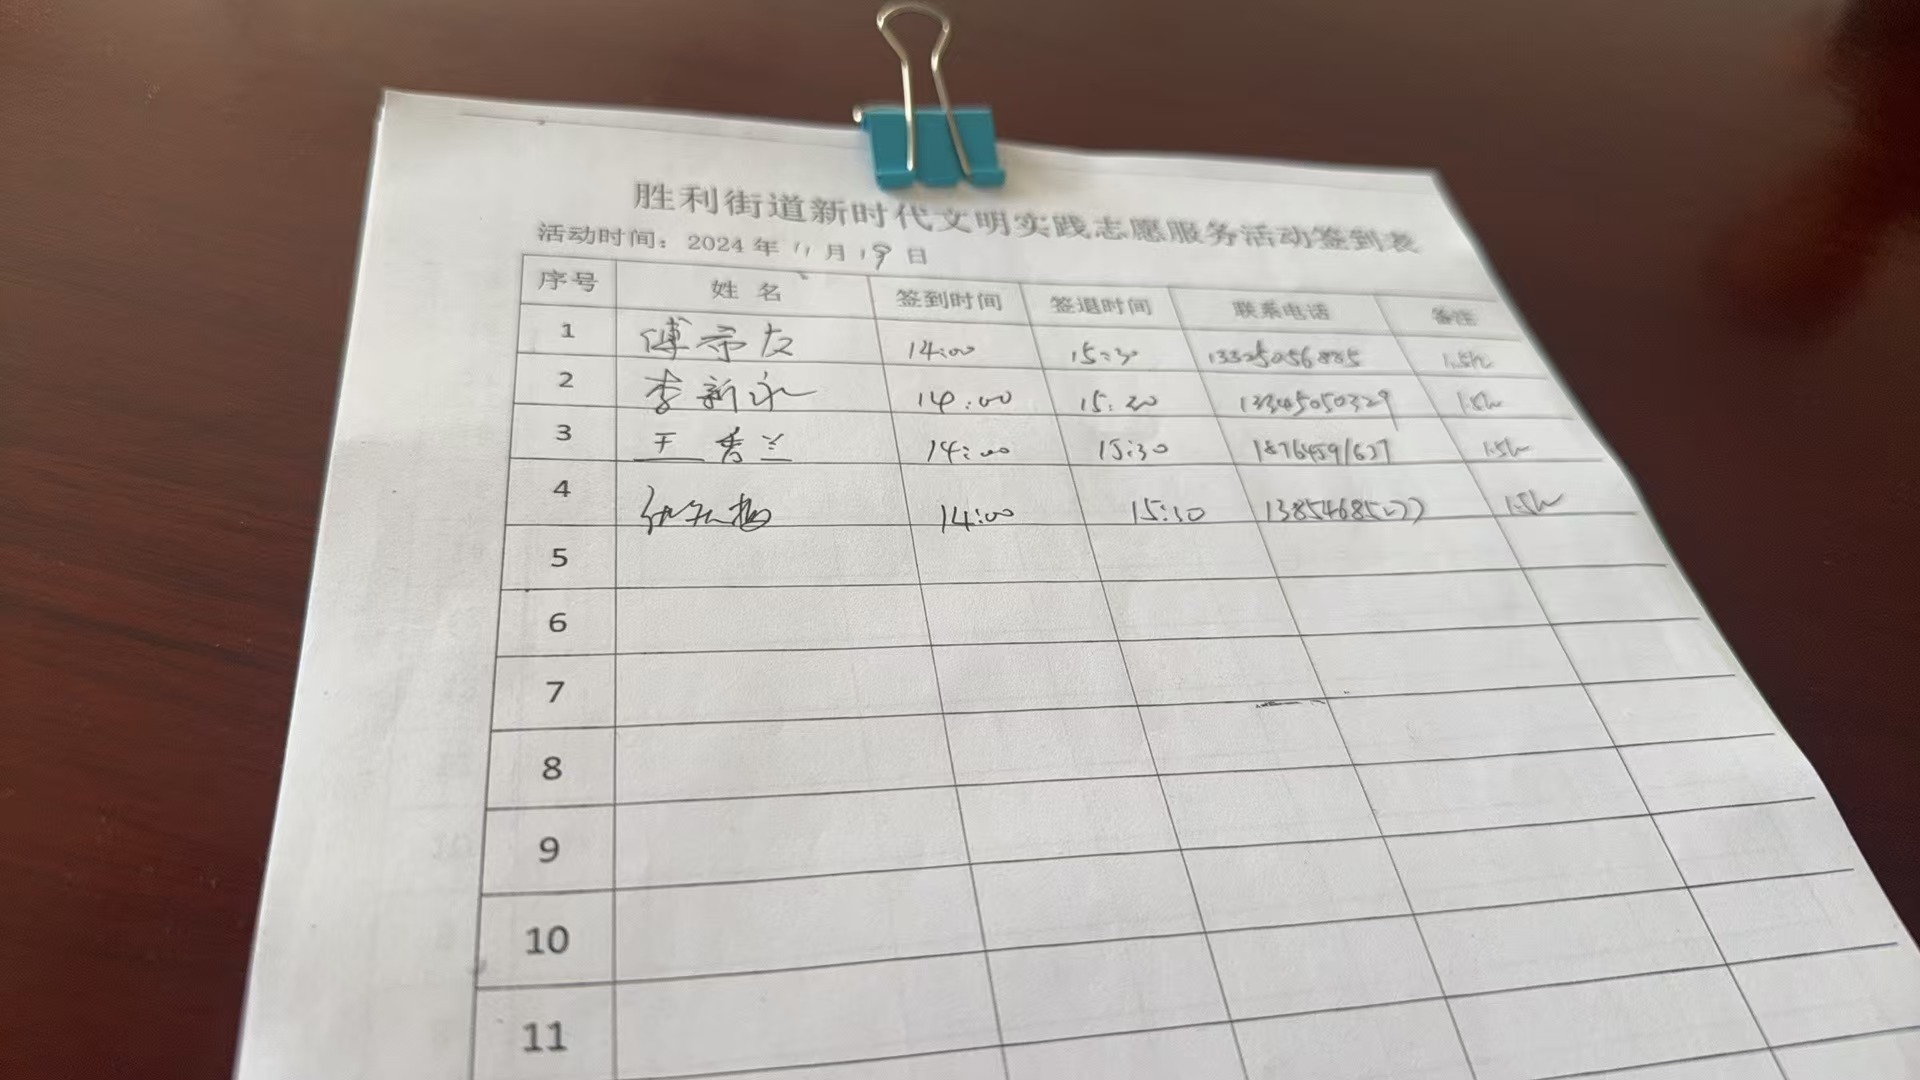 胜利街道新时代文明实践志愿服务活动签到表
活动时间：2024年11月19日
序号 姓名 签到时间 签退时间 联系电话 备注
1 傅希友 14:00 15:30 1.5h
2 李新永 14:00 15:30 13345050329 1.5h
3 王秀兰 14:00 15:30 18764591637 1.5h
4 14:00 15:30 1.5h
5
6
7
8
9
10
11